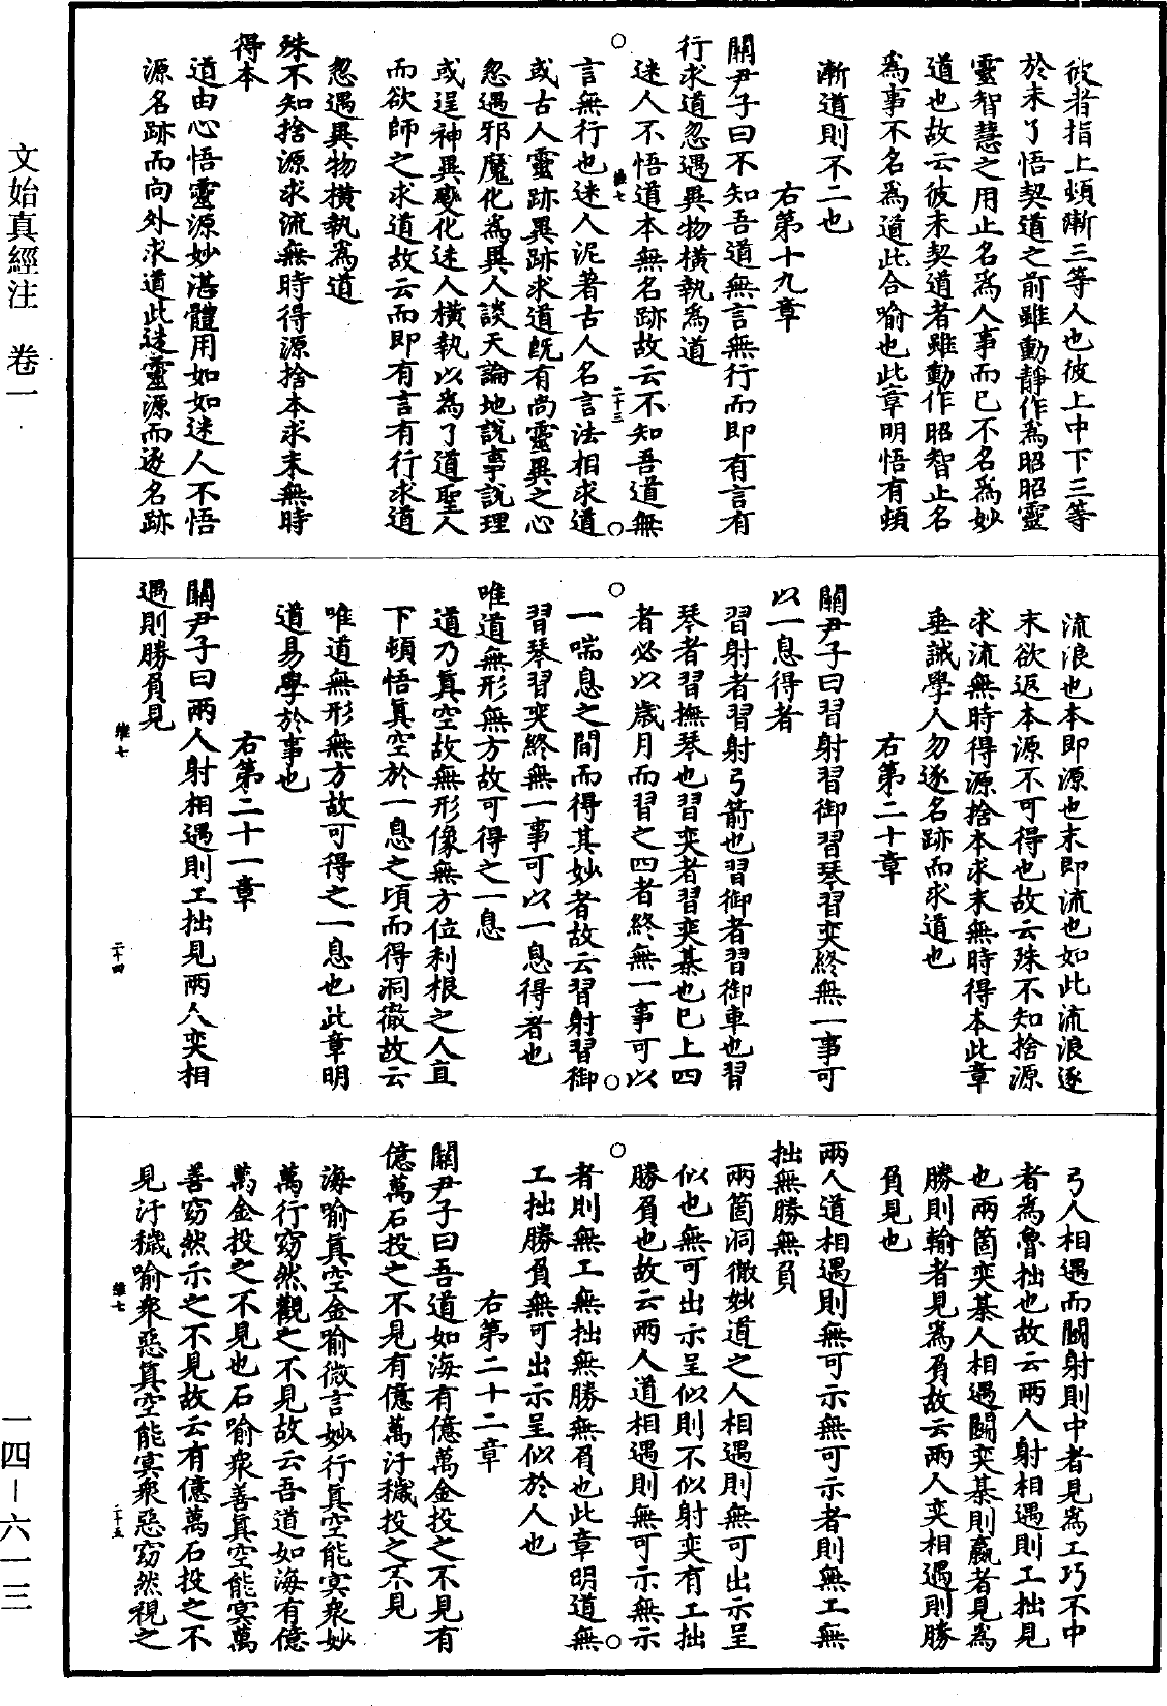 彼者指上頓漸三等人也彼上中下三等
於未了悟契道之前雖動靜作爲昭昭靈
靈智慧之用止名爲人事而已不名爲妙
道也故云彼未契道者雖動作昭智止名
爲事不名爲道此合喻也此章明悟有頓
漸道則不二也
右第十九章
關尹子曰不知吾道無言無行而即有言有
行求道忽遇異物橫執爲道
迷人不悟道本無名跡故云不知吾道無
言無行也迷人泥著古人名言法相求道
或古人靈跡異跡求道既有尚靈異之心
忽遇邪魔化爲異人談天論地說事說理
或逞神異變化迷人橫執以爲了道聖人
而欲師之求道故云而即有言有行求道
忽遇異物橫執爲道
殊不知捨源求流無時得源捨本求末無時
得本
道由心悟靈源妙湛體用如如迷人不悟
源名跡而向外求道此迷靈源而逐名跡
維七
二十三
流浪也本即源也末即流也如此流浪逐
末欲返本源不可得也故云殊不知捨源
求流無時得源捨本求末無時得本此章
垂誡學人勿逐名跡而求道也
右第二十章
關尹子曰習射習御習琴習奕終無一事可
以一息得者
習射者習射弓箭也習御者習御車也習
琴者習撫琴也習奕者習奕棊也已上四
者必以歲月而習之四者終無一事可以
一喘息之間而得其妙者故云習射習御
習琴習奕終無一事可以一息得者也
唯道無形無方故可得之一息
道乃真空故無形像無方位利根之人直
下頓悟真空於一息之頃而得洞徹故云
唯道無形無方故可得之一息也此章明
道易學於事也
右第二十一章
關尹子曰兩人射相遇則工拙見兩人奕相
遇則勝負見
維七
二十四
弓人相遇而鬭射則中者見爲工巧不中
者爲魯拙也故云兩人射相遇則工拙見
也兩箇奕棊人相遇鬭奕棊則贏者見爲
勝則輸者見爲負故云兩人奕相遇則勝
負見也
兩人道相遇則無可示無可示者則無工無
拙無勝無負
兩箇洞徹妙道之人相遇則無可出示呈
似也無可出示呈似則不似射奕有工拙
勝負也故云兩人道相遇則無可示無示
者則無工無拙無勝無負也此章明道無
工拙勝負無可出示呈似於人也
右第二十二章
關尹子曰吾道如海有億萬金投之不見有
億萬石投之不見有億萬汙穢投之不見
海喻真空金喻微言妙行真空能㝠衆妙
萬行窈然觀之不見故云吾道如海有億
萬金投之不見也石喻衆善真空能㝠萬
善窈然示之不見故云有億萬石投之不
見汙穢喻衆惡真空能㝠衆惡窈然視之
維七
二十五
文始真經注　卷一
一四－六一三